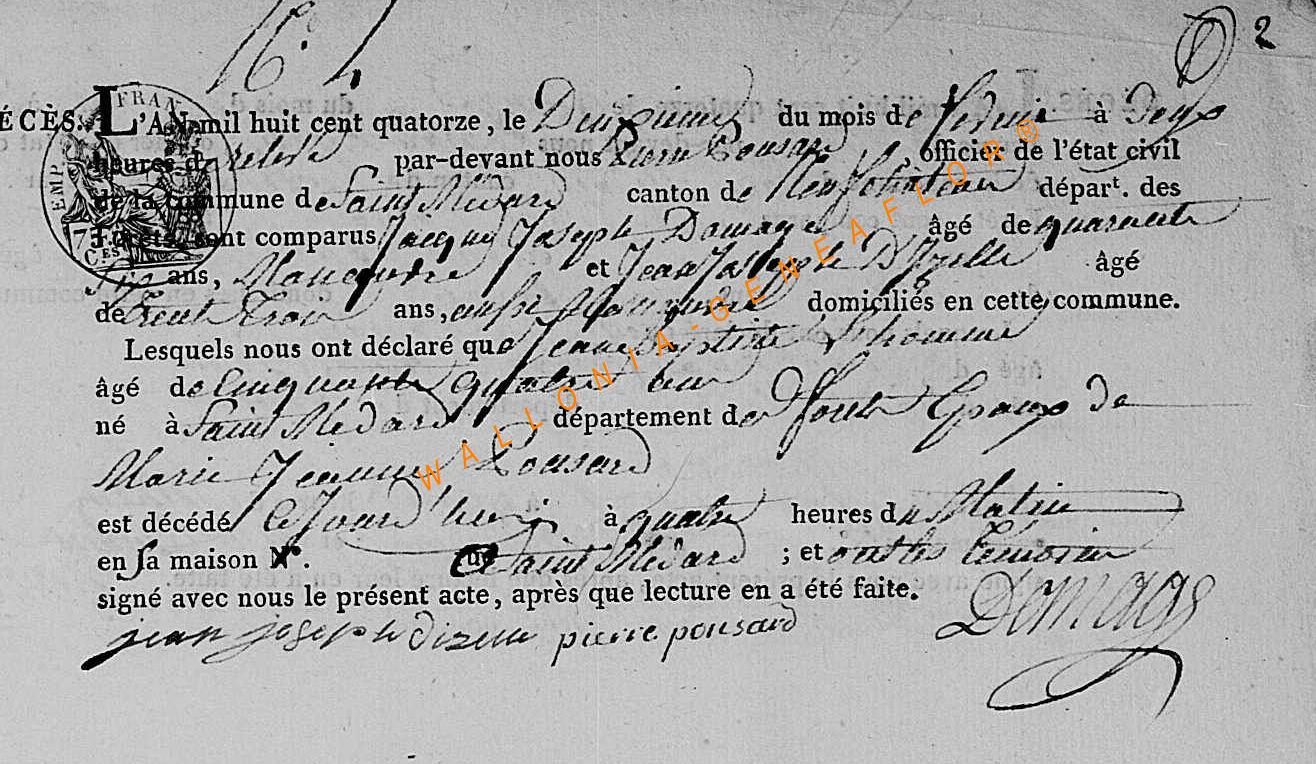 N.° 1
2
DÉCÈS. L'AN mil huit cent quatorze, le Deuxieme du mois de fevrier à Deux
heures de relevé par-devant nous Pierre Ponsard, officier de l'état civil
de la commune de Saint Médard canton de Neufchateau départ. des
Forêts, sont comparus Jacques Joseph Damage âgé de quarante
six ans, Manouvre et Jean Joseph Dizelle âgé
de trente trois ans, aussi Manouvre domiciliés en cette commune.
Lesquels nous ont déclaré que Jean Baptiste Lhomme
âgé de cinquante quatre ans
né à Saint Médard département de forets Epoux de
Marie Jeanne Ponsard
est décédé ce jourd'hui à quatre heures du Matin
en sa maison N.° a Saint Médard ; et ont les temoins
signé avec nous le présent acte, après que lecture en a été faite.
jean joseph dizelle pierre ponsard Damage
FRAN
EMP
75
CES
WALLONIA-GENEAFLOR®